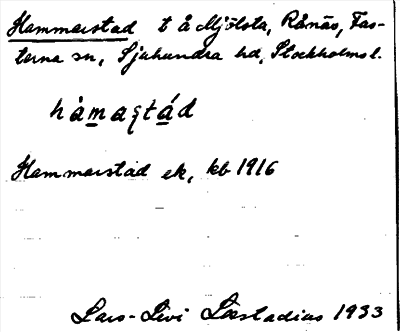 Hammarstad t å Mjölsta, Rånäs, Fas-
terna sn, Sjuhundra hd, Stockholms l.
hàmaʂtád
Hammarstad ek, kb 1916
Lars-Levi Læstadius 1933